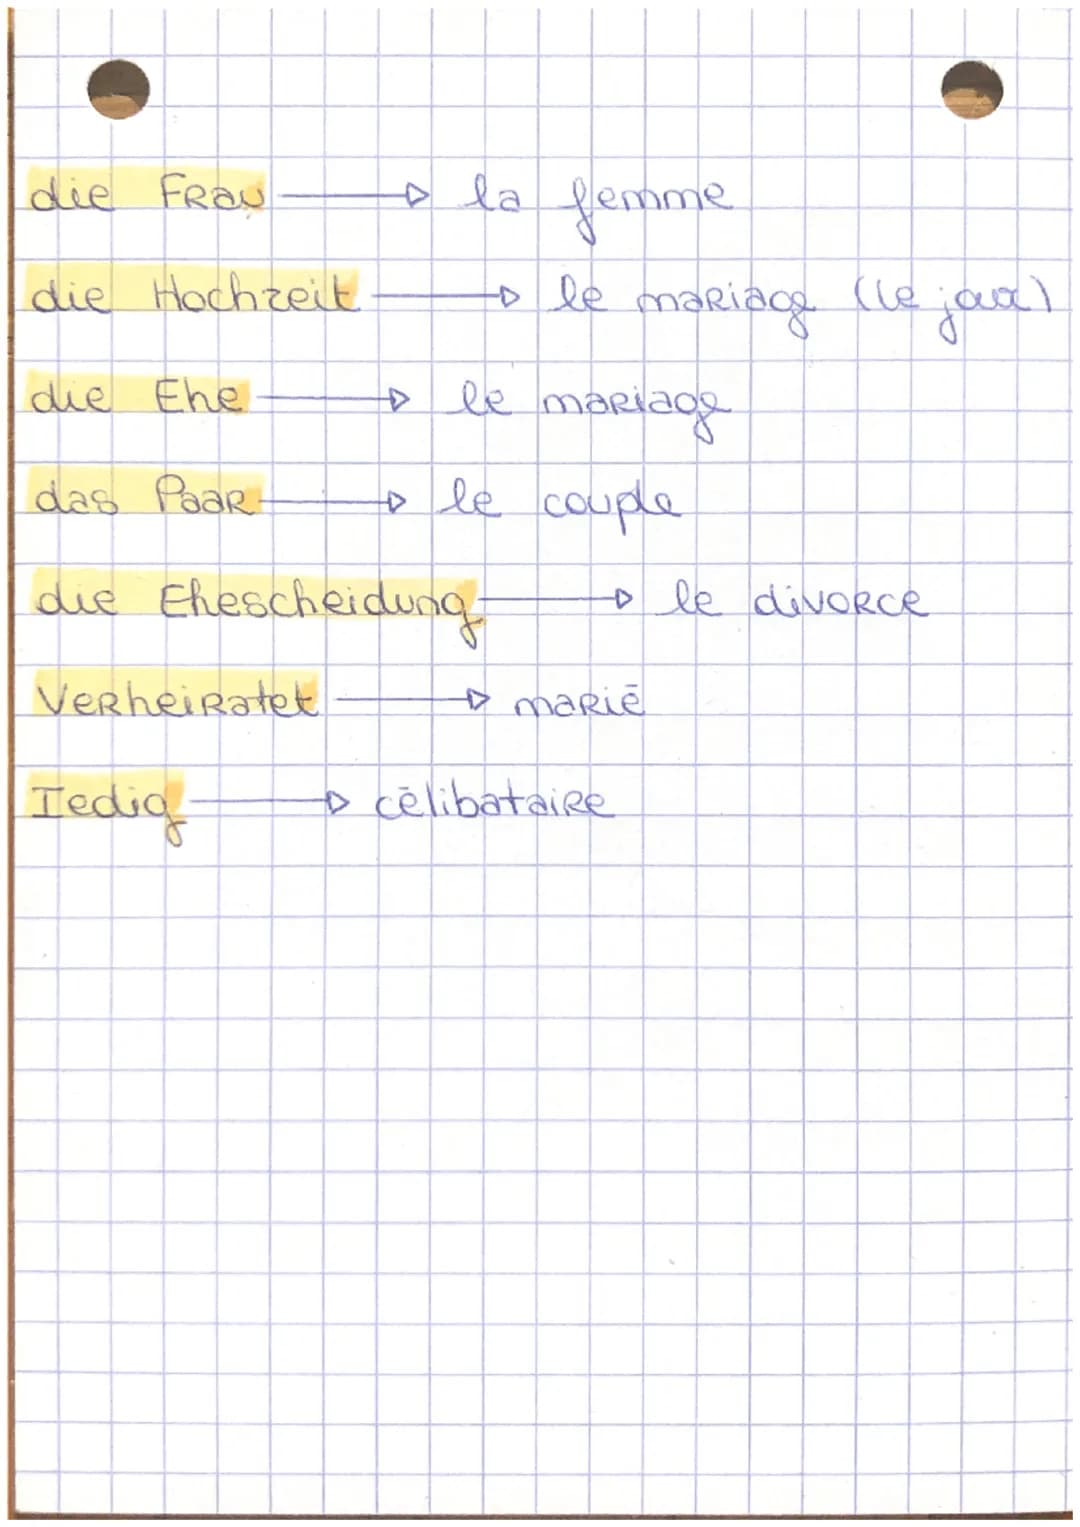 die Frau → la femme
die Hochzeit → le mariage (le jour)
die Ehe → le mariage
das Paar → le couple
die Ehescheidung → le divorce
Verheiratet → marié
Iedig → célibataire